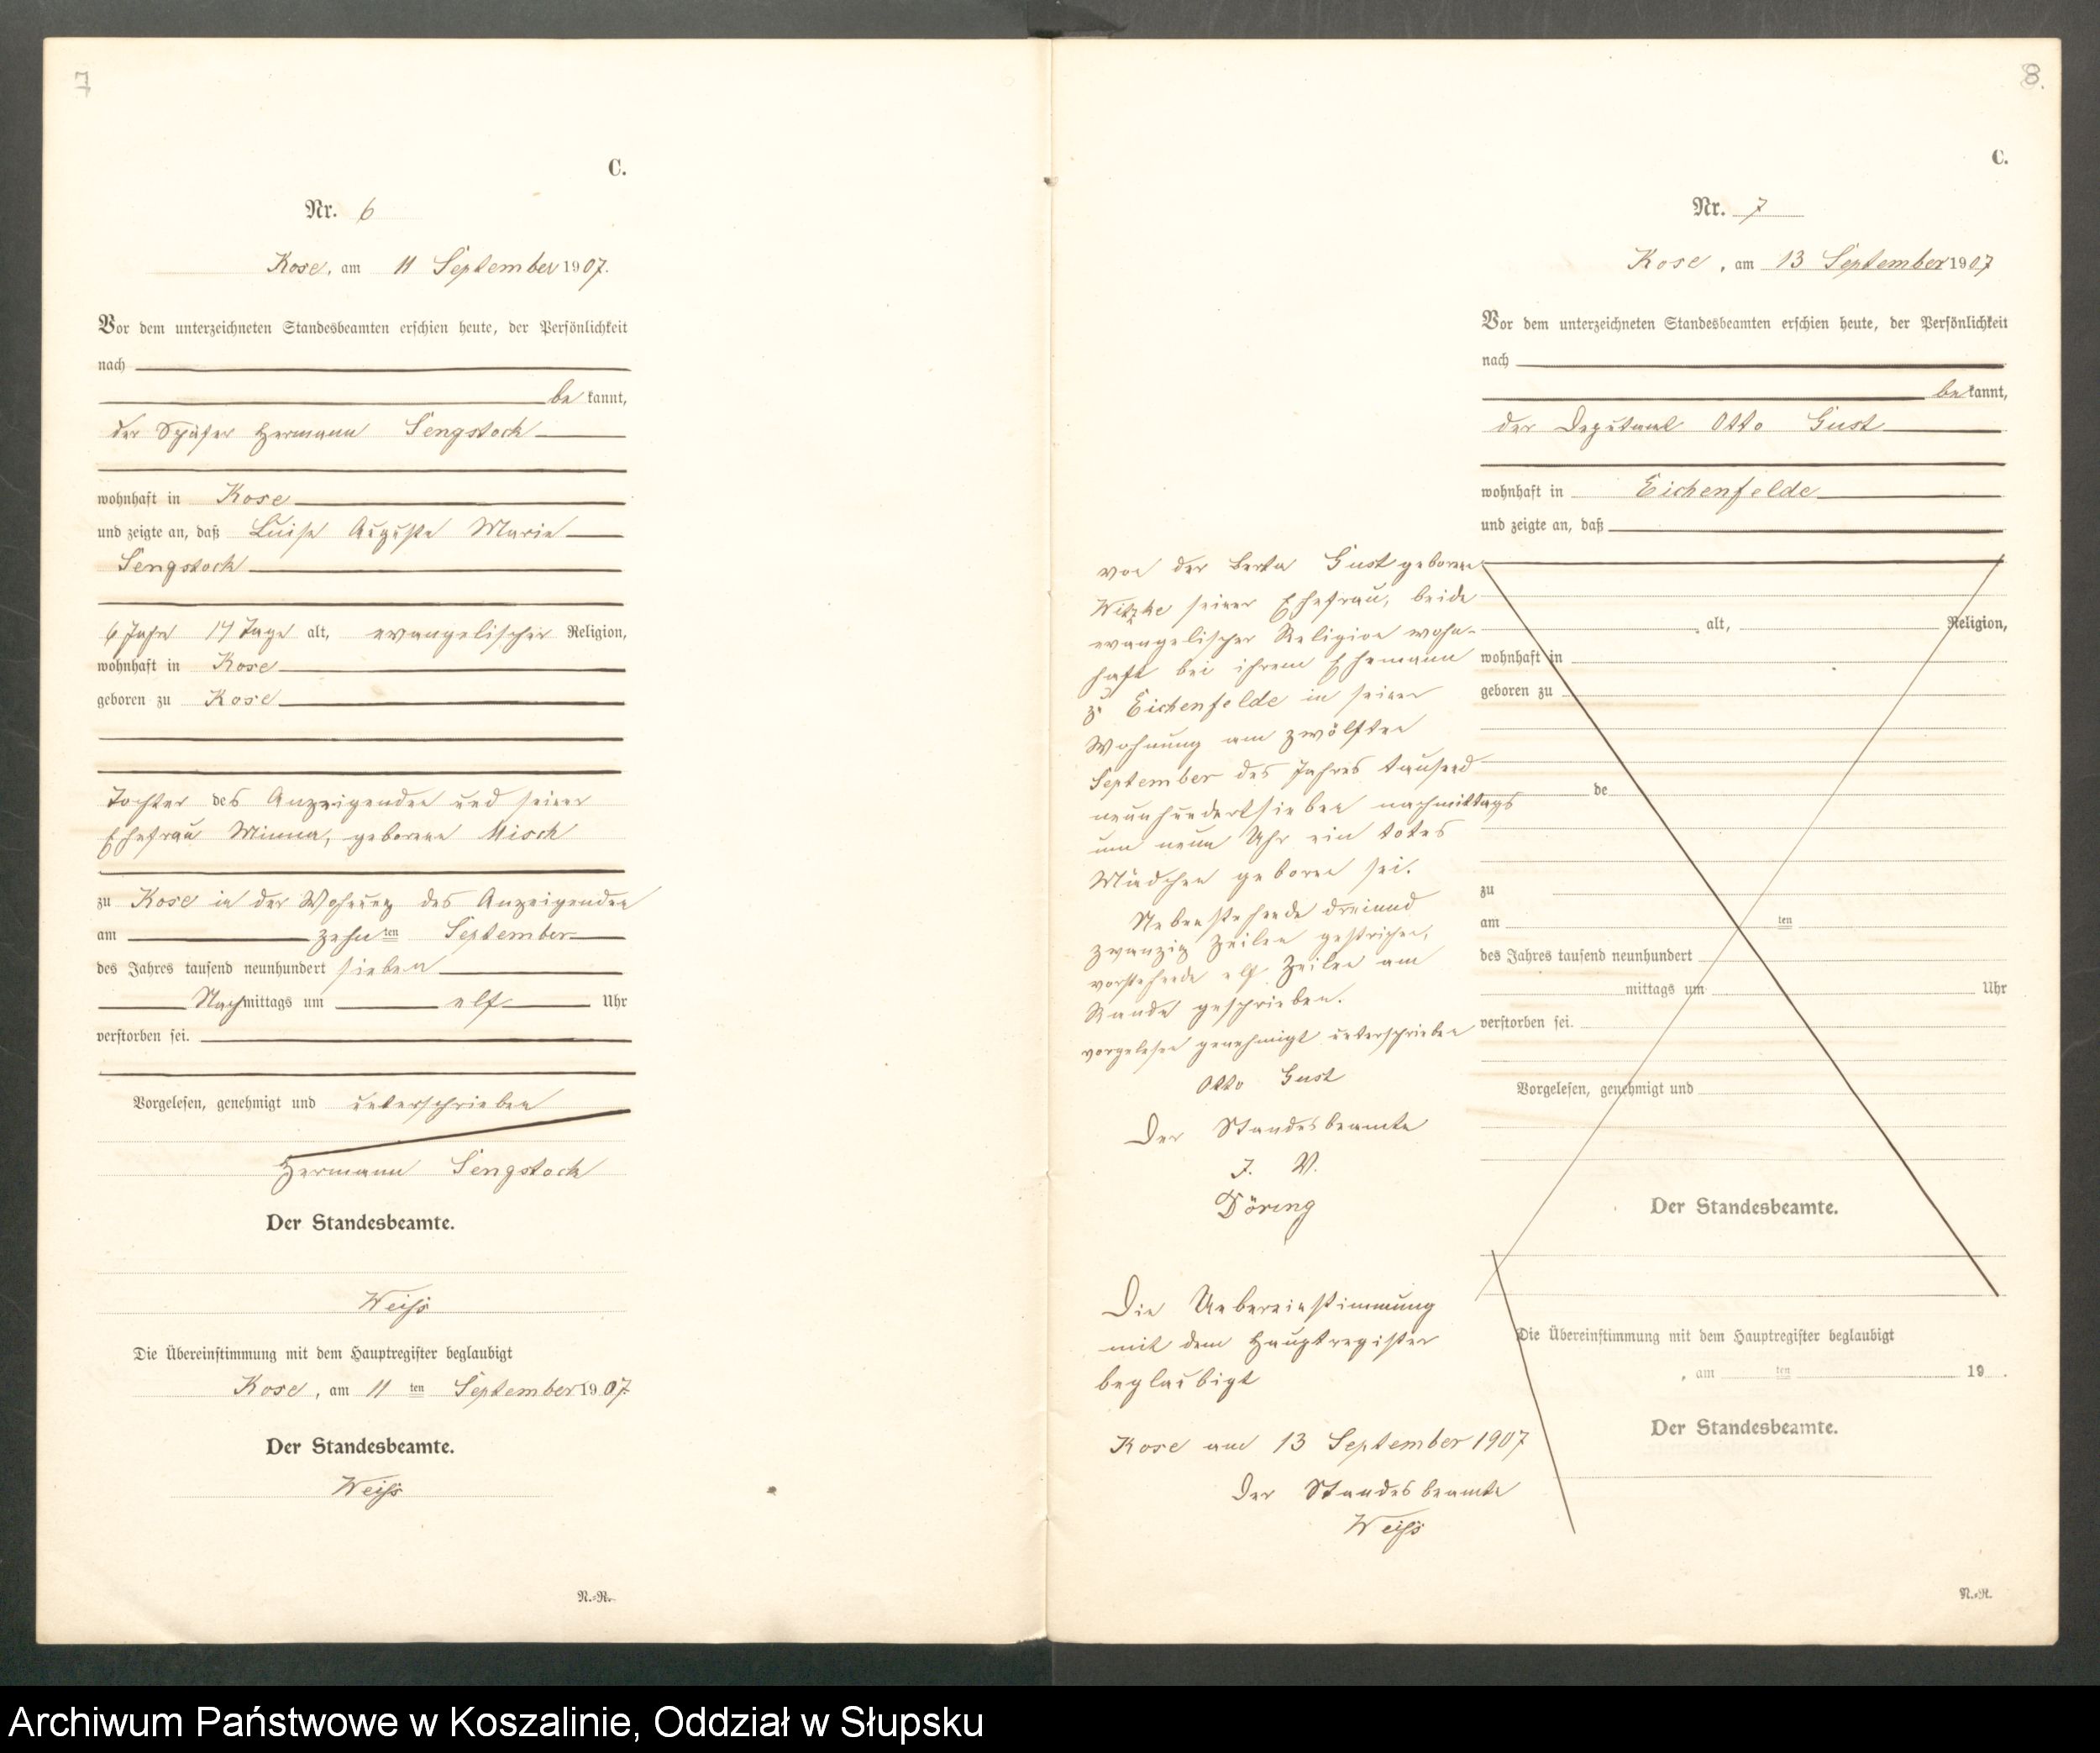 7
C.
Nr. 6
Kose, am 11 September 1907.
Vor dem unterzeichneten Standesbeamten erschien heute, der Persönlichkeit
nach
be kannt,
der Schäfer Hermann Sengstock
wohnhaft in Kose
und zeigte an, daß Luise Auguste Marie
Sengstock
6 Jahr 14 Tage alt, evangelischer Religion,
wohnhaft in Kose
geboren zu Kose
Tochter des Anzeigenden und seiner
Ehefrau Minna, geborenen Misch
zu Kose in der Wohnung des Anzeigenden
am zehn ten September
des Jahres tausend neunhundert sieben
Nachmittags um elf Uhr
verstorben sei.
Vorgelesen, genehmigt und unterschrieben
Hermann Sengstock
Der Standesbeamte.
Weiß
Die Übereinstimmung mit dem Hauptregister beglaubigt
Kose, am 11 ten September 1907
Der Standesbeamte.
Weiß
N.-R.
8.
C.
Nr. 7
Kose, am 13 September 1907
Vor dem unterzeichneten Standesbeamten erschien heute, der Persönlichkeit
nach
be kannt,
der Deputant Otto Gust
wohnhaft in Eichenfelde
und zeigte an, daß
alt, Religion,
wohnhaft in
geboren zu
de
zu
am ten
des Jahres tausend neunhundert
mittags um Uhr
verstorben sei.
Vorgelesen, genehmigt und
Der Standesbeamte.
Die Übereinstimmung mit dem Hauptregister beglaubigt
, am ten 19 .
Der Standesbeamte.
N.-R.
von der Berta Gust geborene
Witzke seiner Ehefrau, beide
evangelischer Religion wohn-
haft bei ihrem Ehemann
zu Eichenfelde in seiner
Wohnung am zwölften
September des Jahres tausend
neunhundertsieben nachmittags
um neun Uhr ein totes
Mädchen geboren sei.
Nebenstehende dreiund
zwanzig Zeilen gestrichen,
vorstehende elf Zeilen am
Rande geschrieben.
vorgelesen genehmigt unterschrieben
Otto Gust
Der Standesbeamte
J. V.
Döring
Die Uebereinstimmung
mit dem Hauptregister
beglaubigt
Kose am 13 September 1907
Der Standesbeamte
Weiß
Archiwum Państwowe w Koszalinie, Oddział w Słupsku